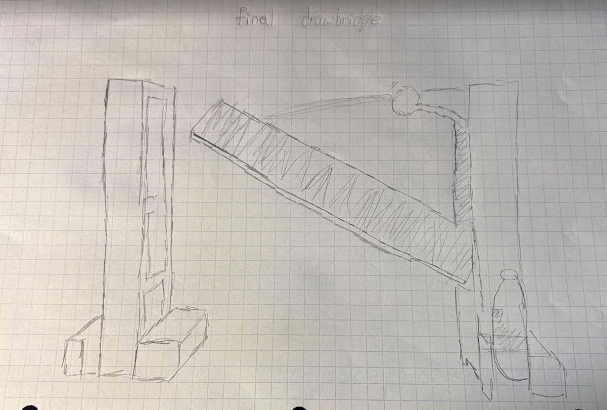 final drawbridge